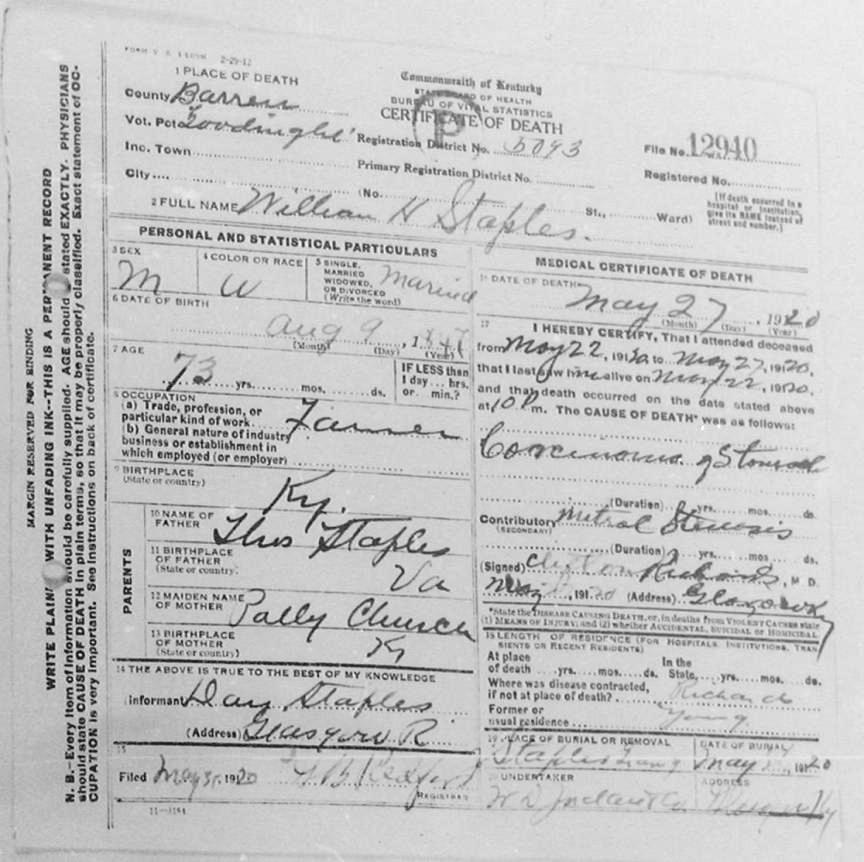 WRITE PLAINLY WITH UNFADING INK—THIS IS A PERMANENT RECORD
MARGIN RESERVED FOR BINDING
N. B.—Every item of information should be carefully supplied. AGE should be stated EXACTLY. PHYSICIANS
should state CAUSE OF DEATH in plain terms, so that it may be properly classified. Exact statement of OC-
CUPATION is very important. See instructions on back of certificate.
2-29-12
1 PLACE OF DEATH
County Barren
Vot. Pct Goodnight
Inc. Town
City
Commonwealth of Kentucky
STATE BOARD OF HEALTH
BUREAU OF VITAL STATISTICS
CERTIFICATE OF DEATH
P
Registration District No. 5093
Primary Registration District No.
(No. St., Ward)
File No. 12940
Registered No.
[If death occurred in a
hospital or institution,
give its NAME instead of
street and number.]
2 FULL NAME William H Staples.
PERSONAL AND STATISTICAL PARTICULARS
3 SEX
M
4 COLOR OR RACE
W
5 SINGLE,
MARRIED
WIDOWED,
OR DIVORCED
(Write the word)
Married
6 DATE OF BIRTH
Aug 9, 1847
(Month) (Day) (Year)
7 AGE
73 yrs. mos. ds.
IF LESS than
1 day... hrs.
or... min.?
8 OCCUPATION
(a) Trade, profession, or
particular kind of work Farmer
(b) General nature of industry
business or establishment in
which employed (or employer)
9 BIRTHPLACE
(State or country)
Ky.
PARENTS
10 NAME OF
FATHER
Thos Staples
11 BIRTHPLACE
OF FATHER
(State or country)
Va
12 MAIDEN NAME
OF MOTHER
Polly Church
13 BIRTHPLACE
OF MOTHER
(State or country)
Ky
14 THE ABOVE IS TRUE TO THE BEST OF MY KNOWLEDGE
(Informant) Staples
(Address) Glasgow R
15
Filed May 31 1920
REGISTRAR
11—3184
MEDICAL CERTIFICATE OF DEATH
16 DATE OF DEATH
May 27, 1920
(Month) (Day) (Year)
17 I HEREBY CERTIFY, That I attended deceased
from May 22, 1920 to May 27, 1920,
that I last saw him alive on May 22, 1920,
and that death occurred on the date stated above
at 10 P m. The CAUSE OF DEATH* was as follows:
Carcinoma of Stomach
(Duration) yrs. mos. ds.
Contributory Mitral Stenosis
(SECONDARY)
(Duration) yrs. mos. ds.
(Signed) Clifton Richards, M D.
May, 1920 (Address) Glasgow Ky
*State the DISEASE CAUSING DEATH, or, in deaths from VIOLENT CAUSES state
(1) MEANS OF INJURY; and (2) whether ACCIDENTAL, SUICIDAL or HOMICIDAL
18 LENGTH OF RESIDENCE (FOR HOSPITALS, INSTITUTIONS, TRAN
SIENTS OR RECENT RESIDENTS)
At place
of death yrs. mos. ds.
In the
State, yrs. mos. ds.
Where was disease contracted,
if not at place of death? Richards
Former or
usual residence Young
19 PLACE OF BURIAL OR REMOVAL
Staples
DATE OF BURIAL
May 1920
20 UNDERTAKER
ADDRESS
Ky